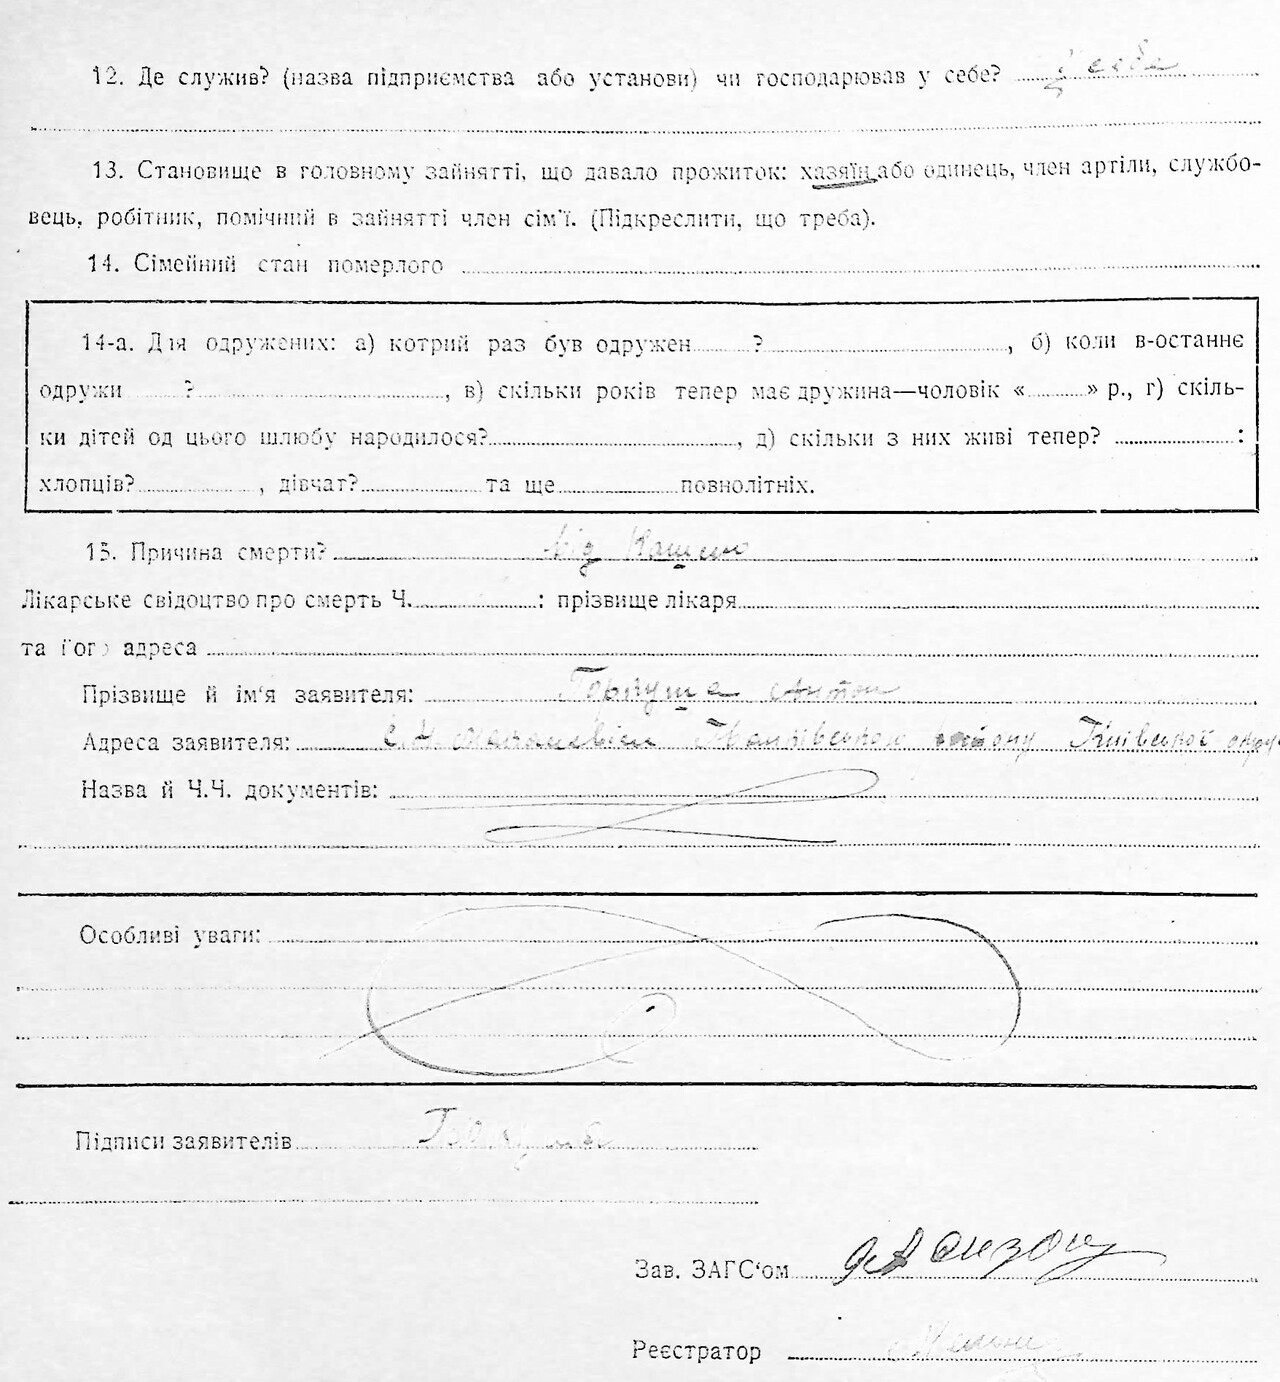 12. Де служив? (назва підприємства або установи) чи господарював у себе? у себе
13. Становище в головному зайнятті, що давало прожиток: хазяїн або одинець, член артіли, службо-
вець, робітник, помічний в зайнятті член сім'ї. (Підкреслити, що треба).
14. Сімейний стан померлого
14-а. Для одружених: а) котрий раз був одружен ?, б) коли в-останнє
одружи ?, в) скільки років тепер має дружина—чоловік « » р., г) скіль-
ки дітей од цього шлюбу народилося?, д) скільки з них живі тепер? :
хлопців?, дівчат? та ще повнолітніх.
15. Причина смерти? від Кашлю
Лікарське свідоцтво про смерть Ч. : прізвище лікаря
та його адреса
Прізвище й ім'я заявителя: Горкуша Антон
Адреса заявителя: Іванківського району Київської округ
Назва й Ч.Ч. документів:
Особливі уваги:
Підписи заявителів Горкуша
Зав. ЗАГС'ом
Реєстратор